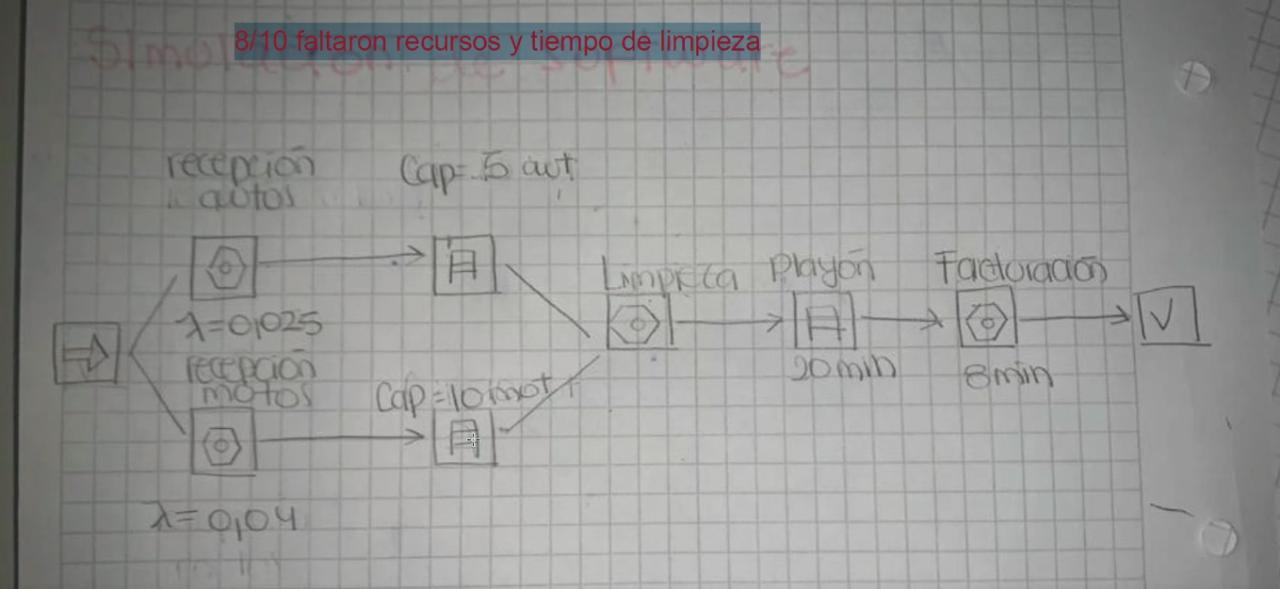 8/10 faltaron recursos y tiempo de limpieza
Simulación de software
recepción
autos
Cap= 5 aut
λ=0,025
recepción
motos
Cap=10 mot
λ=0,04
Limpieza
Playón
20min
Facturación
8min